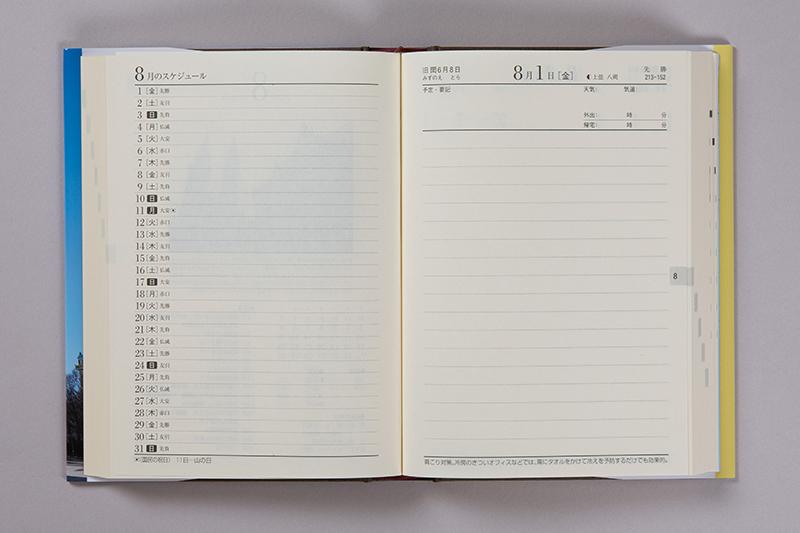 8月のスケジュール
1 [金] 先勝
2 [土] 友引
3 [日] 先負
4 [月] 仏滅
5 [火] 大安
6 [水] 赤口
7 [木] 先勝
8 [金] 友引
9 [土] 先負
10 [日] 仏滅
11 [月] 大安 ※
12 [火] 赤口
13 [水] 先勝
14 [木] 友引
15 [金] 先負
16 [土] 仏滅
17 [日] 大安
18 [月] 赤口
19 [火] 先勝
20 [水] 友引
21 [木] 先負
22 [金] 仏滅
23 [土] 先勝
24 [日] 友引
25 [月] 先負
26 [火] 仏滅
27 [水] 大安
28 [木] 赤口
29 [金] 先勝
30 [土] 友引
31 [日] 先負
※(国民の祝日) 11日―山の日
旧閏6月8日 8月1日[金] 先勝
みずのえ とら ◐上弦 八朔 213-152
予定・要記 天気: 気温:
外出: 時 分
帰宅: 時 分
8
肩こり対策。冷房のきついオフィスなどでは、肩にタオルをかけて冷えを予防するだけでも効果的。